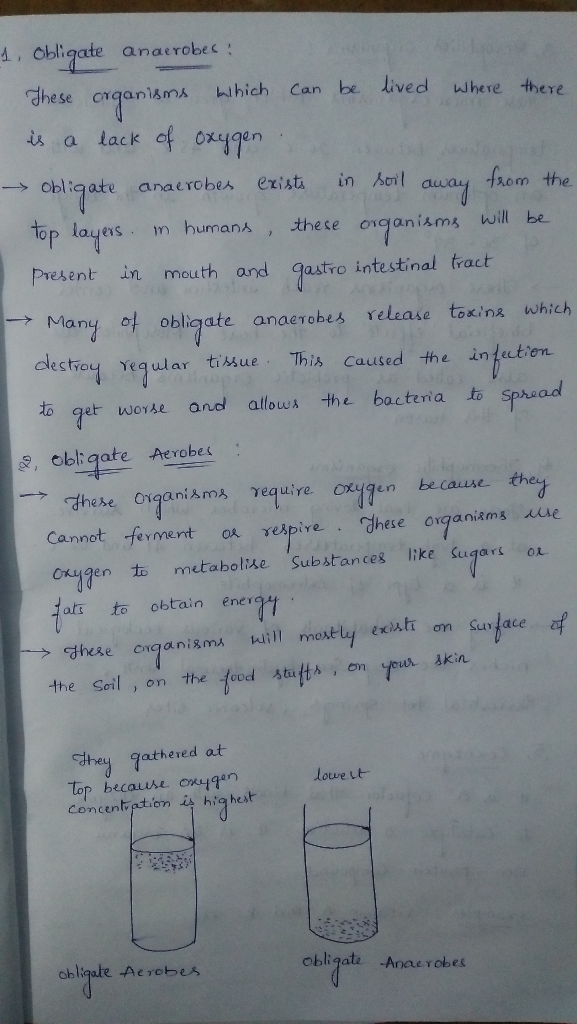 1, Obligate anaerobes :
These organisms which can be lived where there
is a lack of oxygen .
→ Obligate anaerobes exists in soil away from the
top layers. in humans , these organisms will be
present in mouth and gastro intestinal tract
→ Many of obligate anaerobes release toxins which
destroy regular tissue. This caused the infection
to get worse and allows the bacteria to spread
2, Obligate Aerobes :
→ These organisms require oxygen because they
cannot ferment or respire . These organisms use
oxygen to metabolise substances like sugars or
fats to obtain energy .
→ These organisms will mostly exists on surface of
the soil , on the food stuffs , on your skin
They gathered at
Top because oxygen
concentration is highest
lowest
obligate Aerobes
obligate Anaerobes